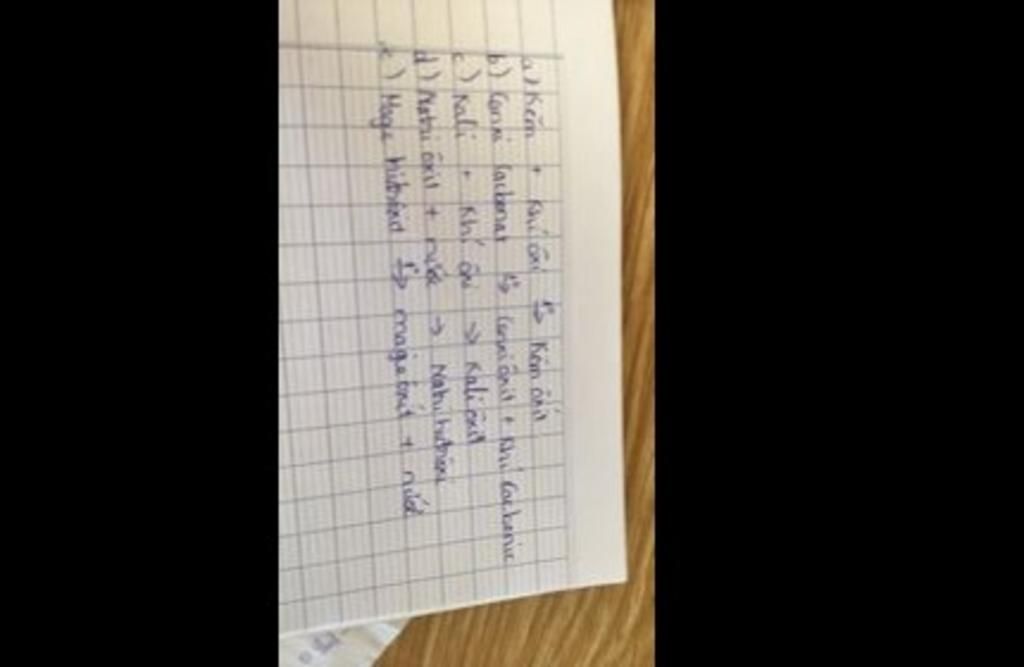 a) Kẽm + khí ôxi t°→ Kẽm ôxit
b) Canxi cacbonat t°→ Canxi ôxit + khí cacbonic
c) Kali + khí ôxi → Kali ôxit
d) Natri ôxit + nước → Natri hiđrôxit
e) Magie hiđrôxit t°→ magie ôxit + nước